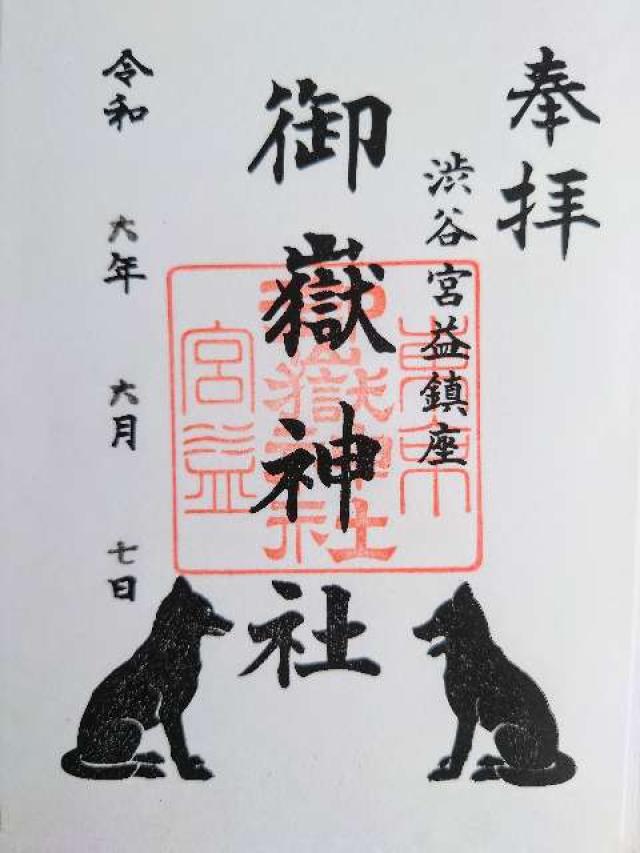 奉拝
渋谷宮益鎮座
御嶽神社
令和 六年 六月 七日
東京
御嶽神社
宮益